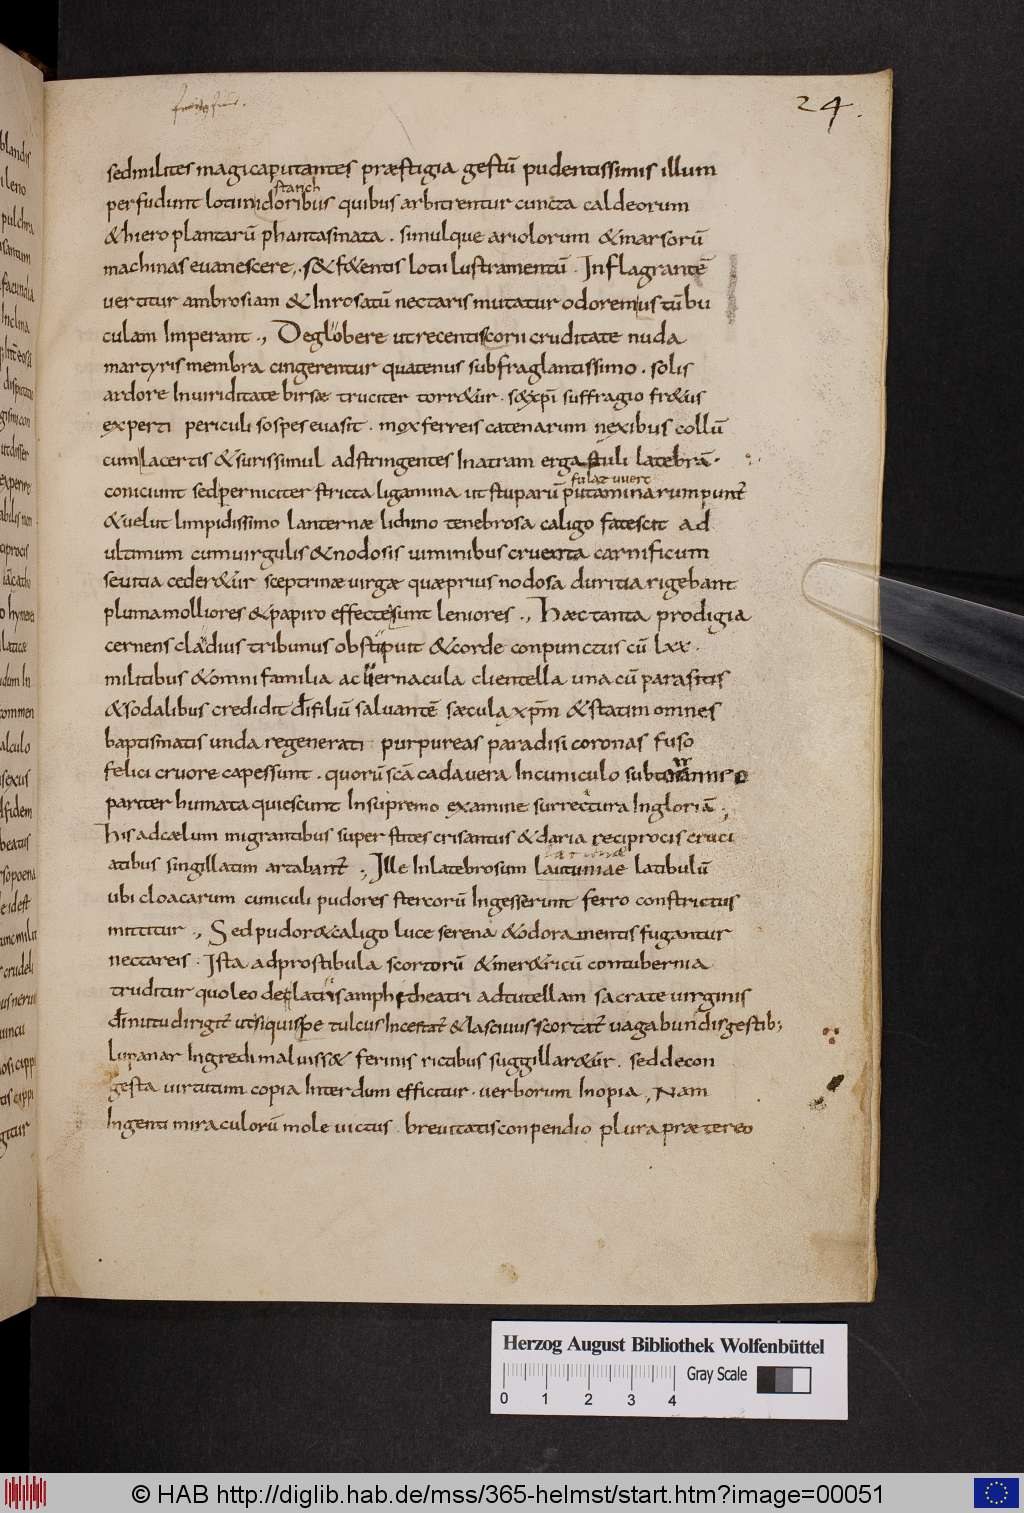 24.
sedmilites magica putantes præstigia gestū pudentissimis illum
stanch
perfudunt lotiu nidoribus quibus arbitrentur cuncta caldeorum
& hiero plantarū phantasmata . simulque ariolorum & marsorū
machinas evanescere ., s& f&entis lotii lustramentū . In flagrantē
vertitur ambrosiam & In rosatū nectaris mutatur odorem us tū bu
culam Imperant ., Deglobere ut recentis corii cruditate nuda
martyris membra cingerentur quatenus sub fraglantissimo . solis
ardore In viriditate birsæ truciter torr&ur . s& xpī suffragio fr&us
experti periculi sospes evasit . mox ferreis catenarum nexibus collū
cum lacertis & suris simul adstringentes In atram ergastuli latebrā .
coniciunt sed perniciter stricta ligamina ut stuparū putaminarum punt̄
& velut limpidissimo lanternæ lichino tenebrosa caligo fatescit ad
ultimum cum virgulis & nodosis viminibus cruenta carnificum
sevitia ceder&ur sceptrinæ virgæ quæ prius nodosa duritia rigebant
pluma molliores & papiro effecte sunt leniores ., Hæc tanta prodigia
cernens cladius tribunus obstipuit & corde conpunctus cū lxx .
militibus & omni familia ac vernacula clientella una cū parasitis
& sodalibus credidit dī filiū salvantē sæcula xpm̄ & statim omnes
baptismatis unda regenerati purpureas paradisi coronas fuso
felici cruore capessunt . quorū scā cadavera In cuniculo
pariter humata quiescunt In supremo examine surrectura In gloriā .,
His ad cælum migrantibus superstites crisantus & daria reciprocis cruci
atibus singillatim artabant̄ ., Ille In latebrosum lautumiae latibulū
ubi cloacarum cuniculi pudores stercorū Ingesserunt ferro constrictus
mittitur ., Sed pudor & caligo luce serena & odoramentis fugantur
nectareis . Ista ad prostibula scortorū & mer&ricū contubernia
truditur quo leo de clatris amphetheatri ad tutellam sacrate virginis
dī nutu dirigit̄ ut si quispe tulcus Incestat̄ & lascivus scortat̄ vagabundis gestib;
lupanar Ingredi maluiss& ferinis rictibus suggillar&ur . sed de con
gesta virtutum copia Interdum efficitur . verborum Inopia , Nam
Ingenti miraculorū mole victus . brevitatis conpendio plura prætereo
Herzog August Bibliothek Wolfenbüttel
Gray Scale
0 1 2 3 4
© HAB http://diglib.hab.de/mss/365-helmst/start.htm?image=00051